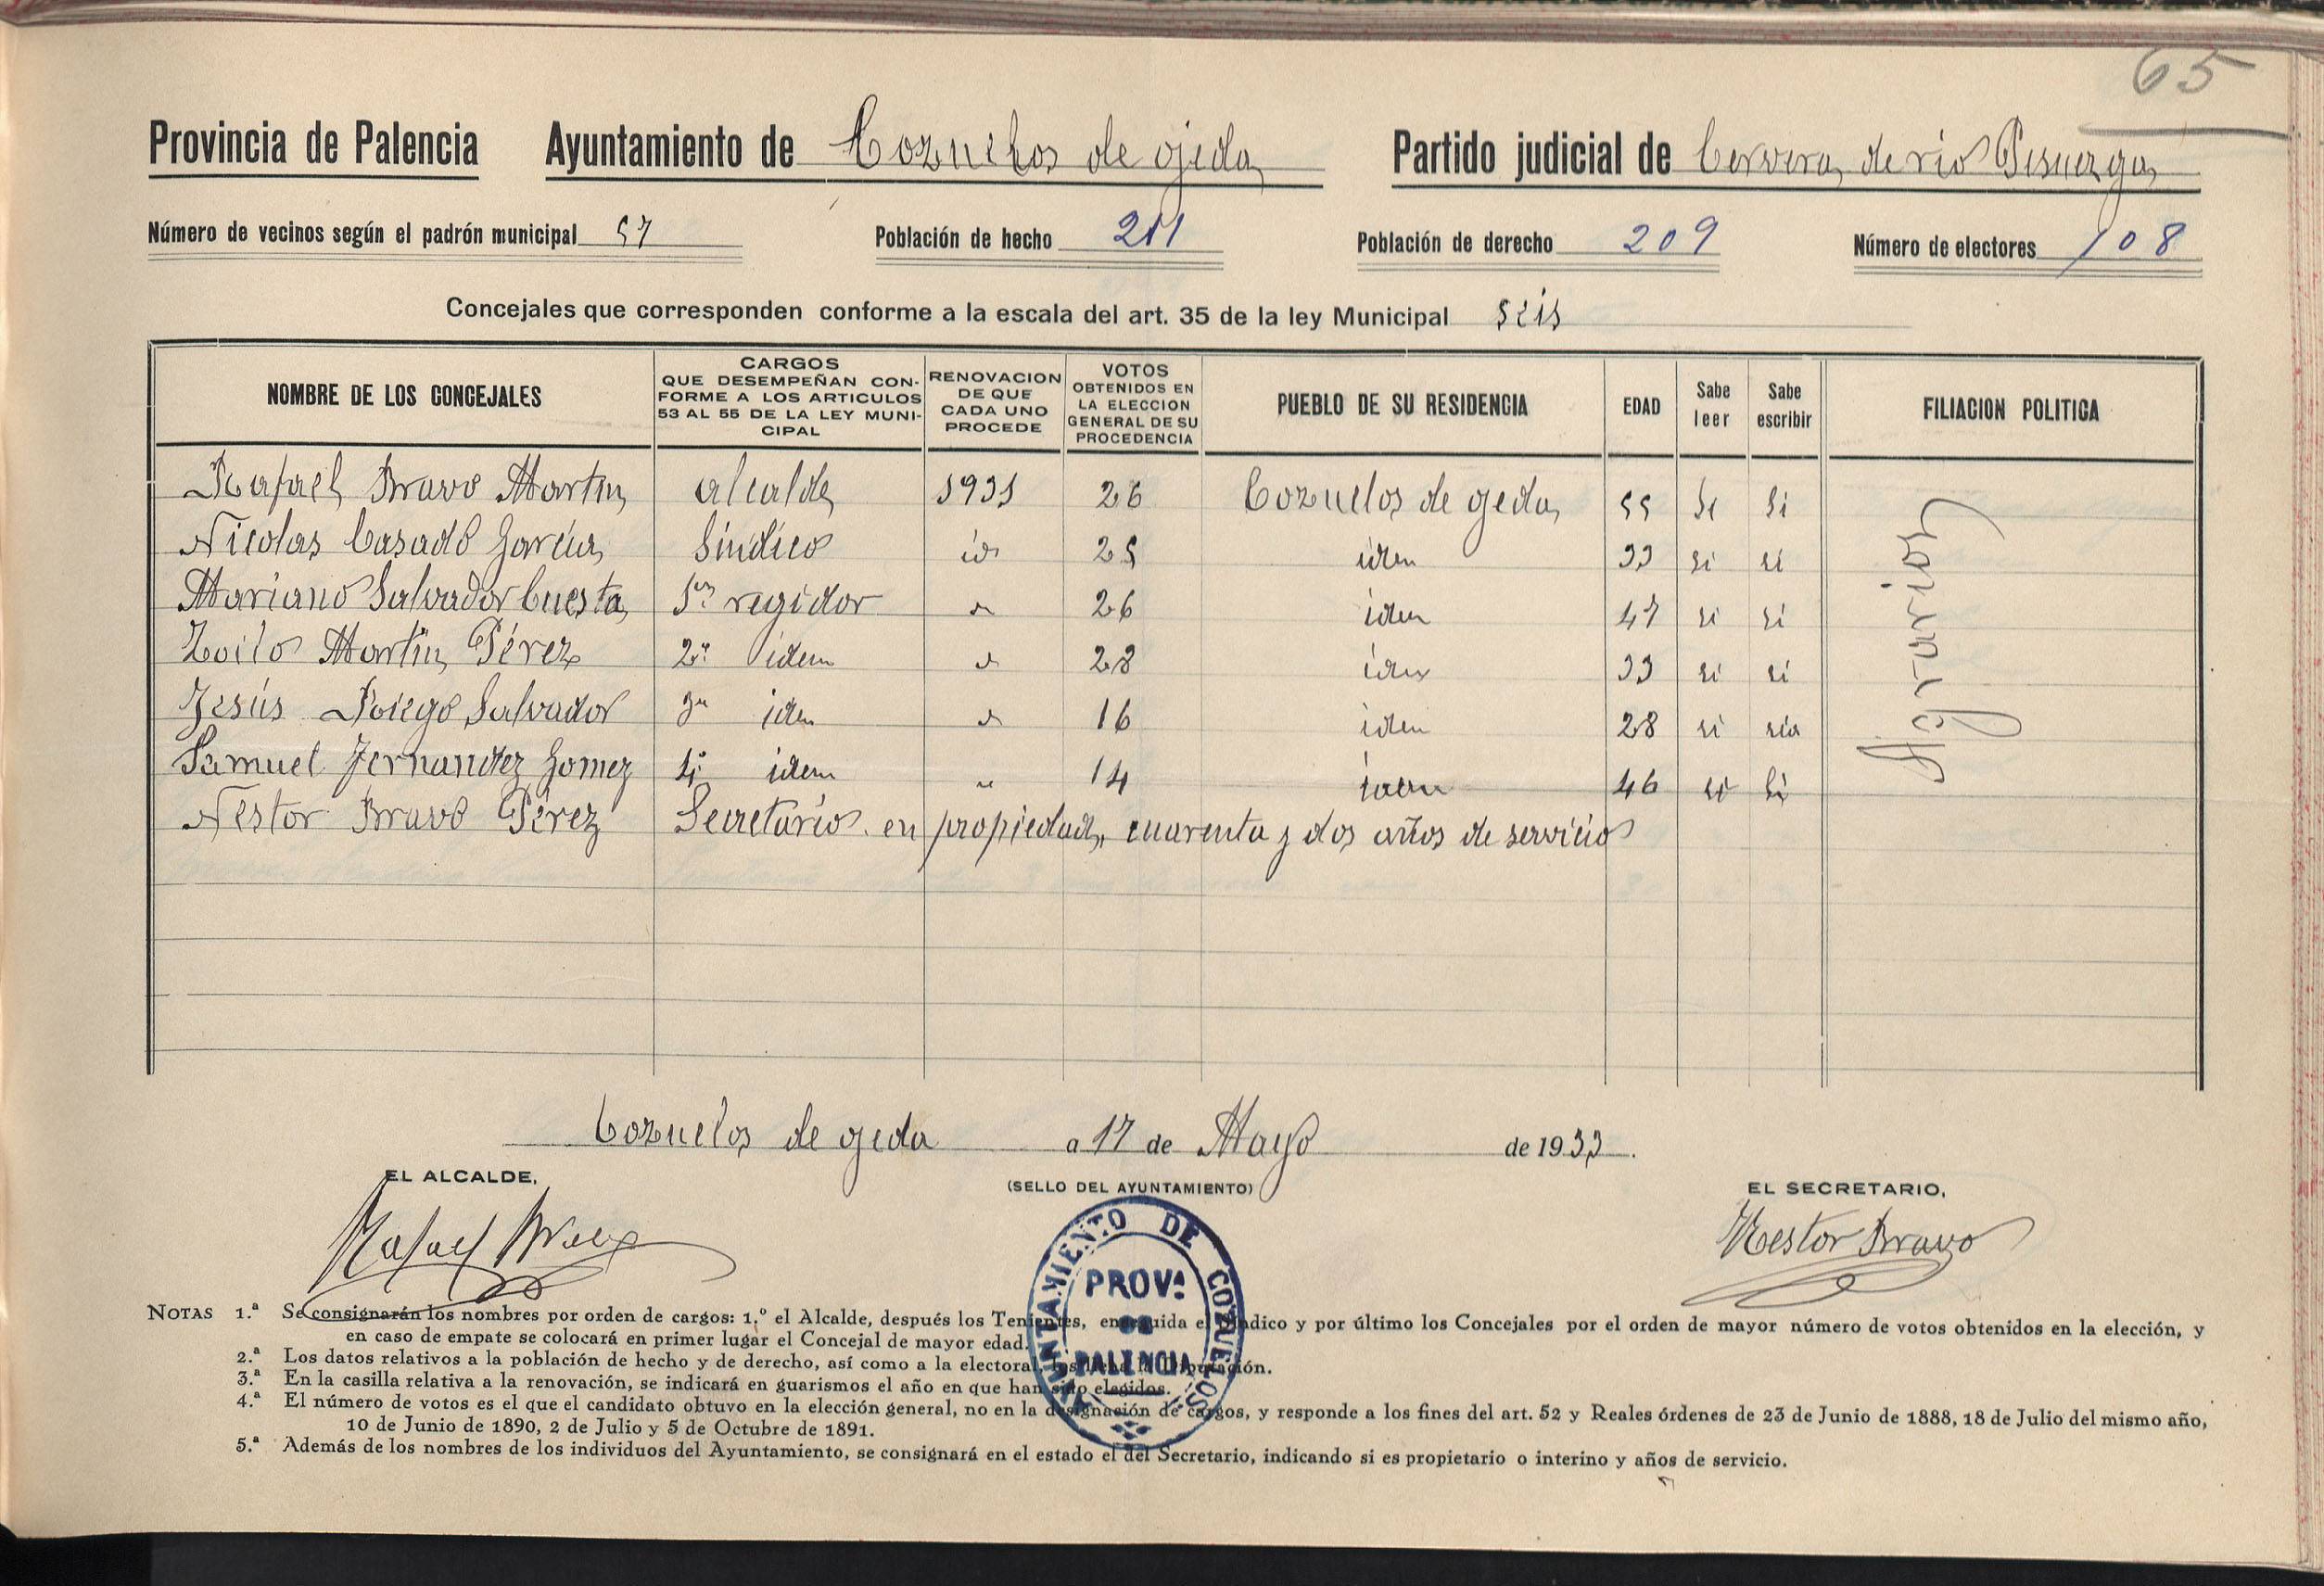 65
Provincia de Palencia Ayuntamiento de Cozuelos de ojeda Partido judicial de Cervera de rio Pisuerga
Número de vecinos según el padrón municipal 57 Población de hecho 211 Población de derecho 209 Número de electores 108
Concejales que corresponden conforme a la escala del art. 35 de la ley Municipal seis
NOMBRE DE LOS CONCEJALES
CARGOS
QUE DESEMPEÑAN CON-
FORME A LOS ARTICULOS
53 AL 55 DE LA LEY MUNI-
CIPAL
RENOVACION
DE QUE
CADA UNO
PROCEDE
VOTOS
OBTENIDOS EN
LA ELECCION
GENERAL DE SU
PROCEDENCIA
PUEBLO DE SU RESIDENCIA
EDAD
Sabe
leer
Sabe
escribir
FILIACION POLITICA
Rafael Bravo Martin alcalde 1931 26 Cozuelos de ojeda 55 Si Si
Nicolas Casado García Sindico id 25 iden 33 si si
Mariano Salvador Cuesta 1er regidor 26 iden 47 si si
Zoilo Martin Pérez 2º idem 28 iden 33 si si
Jesús Diego Salvador 3er iden 16 iden 28 si si
Samuel Fernandez Gomez 4º idem 14 iden 46 si si
Nestor Bravo Pérez Secretario en propiedad, cuarenta y dos años de servicio
Agrarios
Cozuelos de ojeda a 17 de Mayo de 1933.
EL ALCALDE,
(SELLO DEL AYUNTAMIENTO)
EL SECRETARIO,
Rafael Bravo
Nestor Bravo
AYUNTAMIENTO DE COZUELOS
PROVª
DE
PALENCIA
NOTAS 1.ª Se consignarán los nombres por orden de cargos: 1.º el Alcalde, después los Tenientes, enseguida el Síndico y por último los Concejales por el orden de mayor número de votos obtenidos en la elección, y
en caso de empate se colocará en primer lugar el Concejal de mayor edad.
2.ª Los datos relativos a la población de hecho y de derecho, así como a la electoral, los llena la Diputación.
3.ª En la casilla relativa a la renovación, se indicará en guarismos el año en que han sido elegidos.
4.ª El número de votos es el que el candidato obtuvo en la elección general, no en la designación de cargos, y responde a los fines del art. 52 y Reales órdenes de 23 de Junio de 1888, 18 de Julio del mismo año,
10 de Junio de 1890, 2 de Julio y 5 de Octubre de 1891.
5.ª Además de los nombres de los individuos del Ayuntamiento, se consignará en el estado el del Secretario, indicando si es propietario o interino y años de servicio.